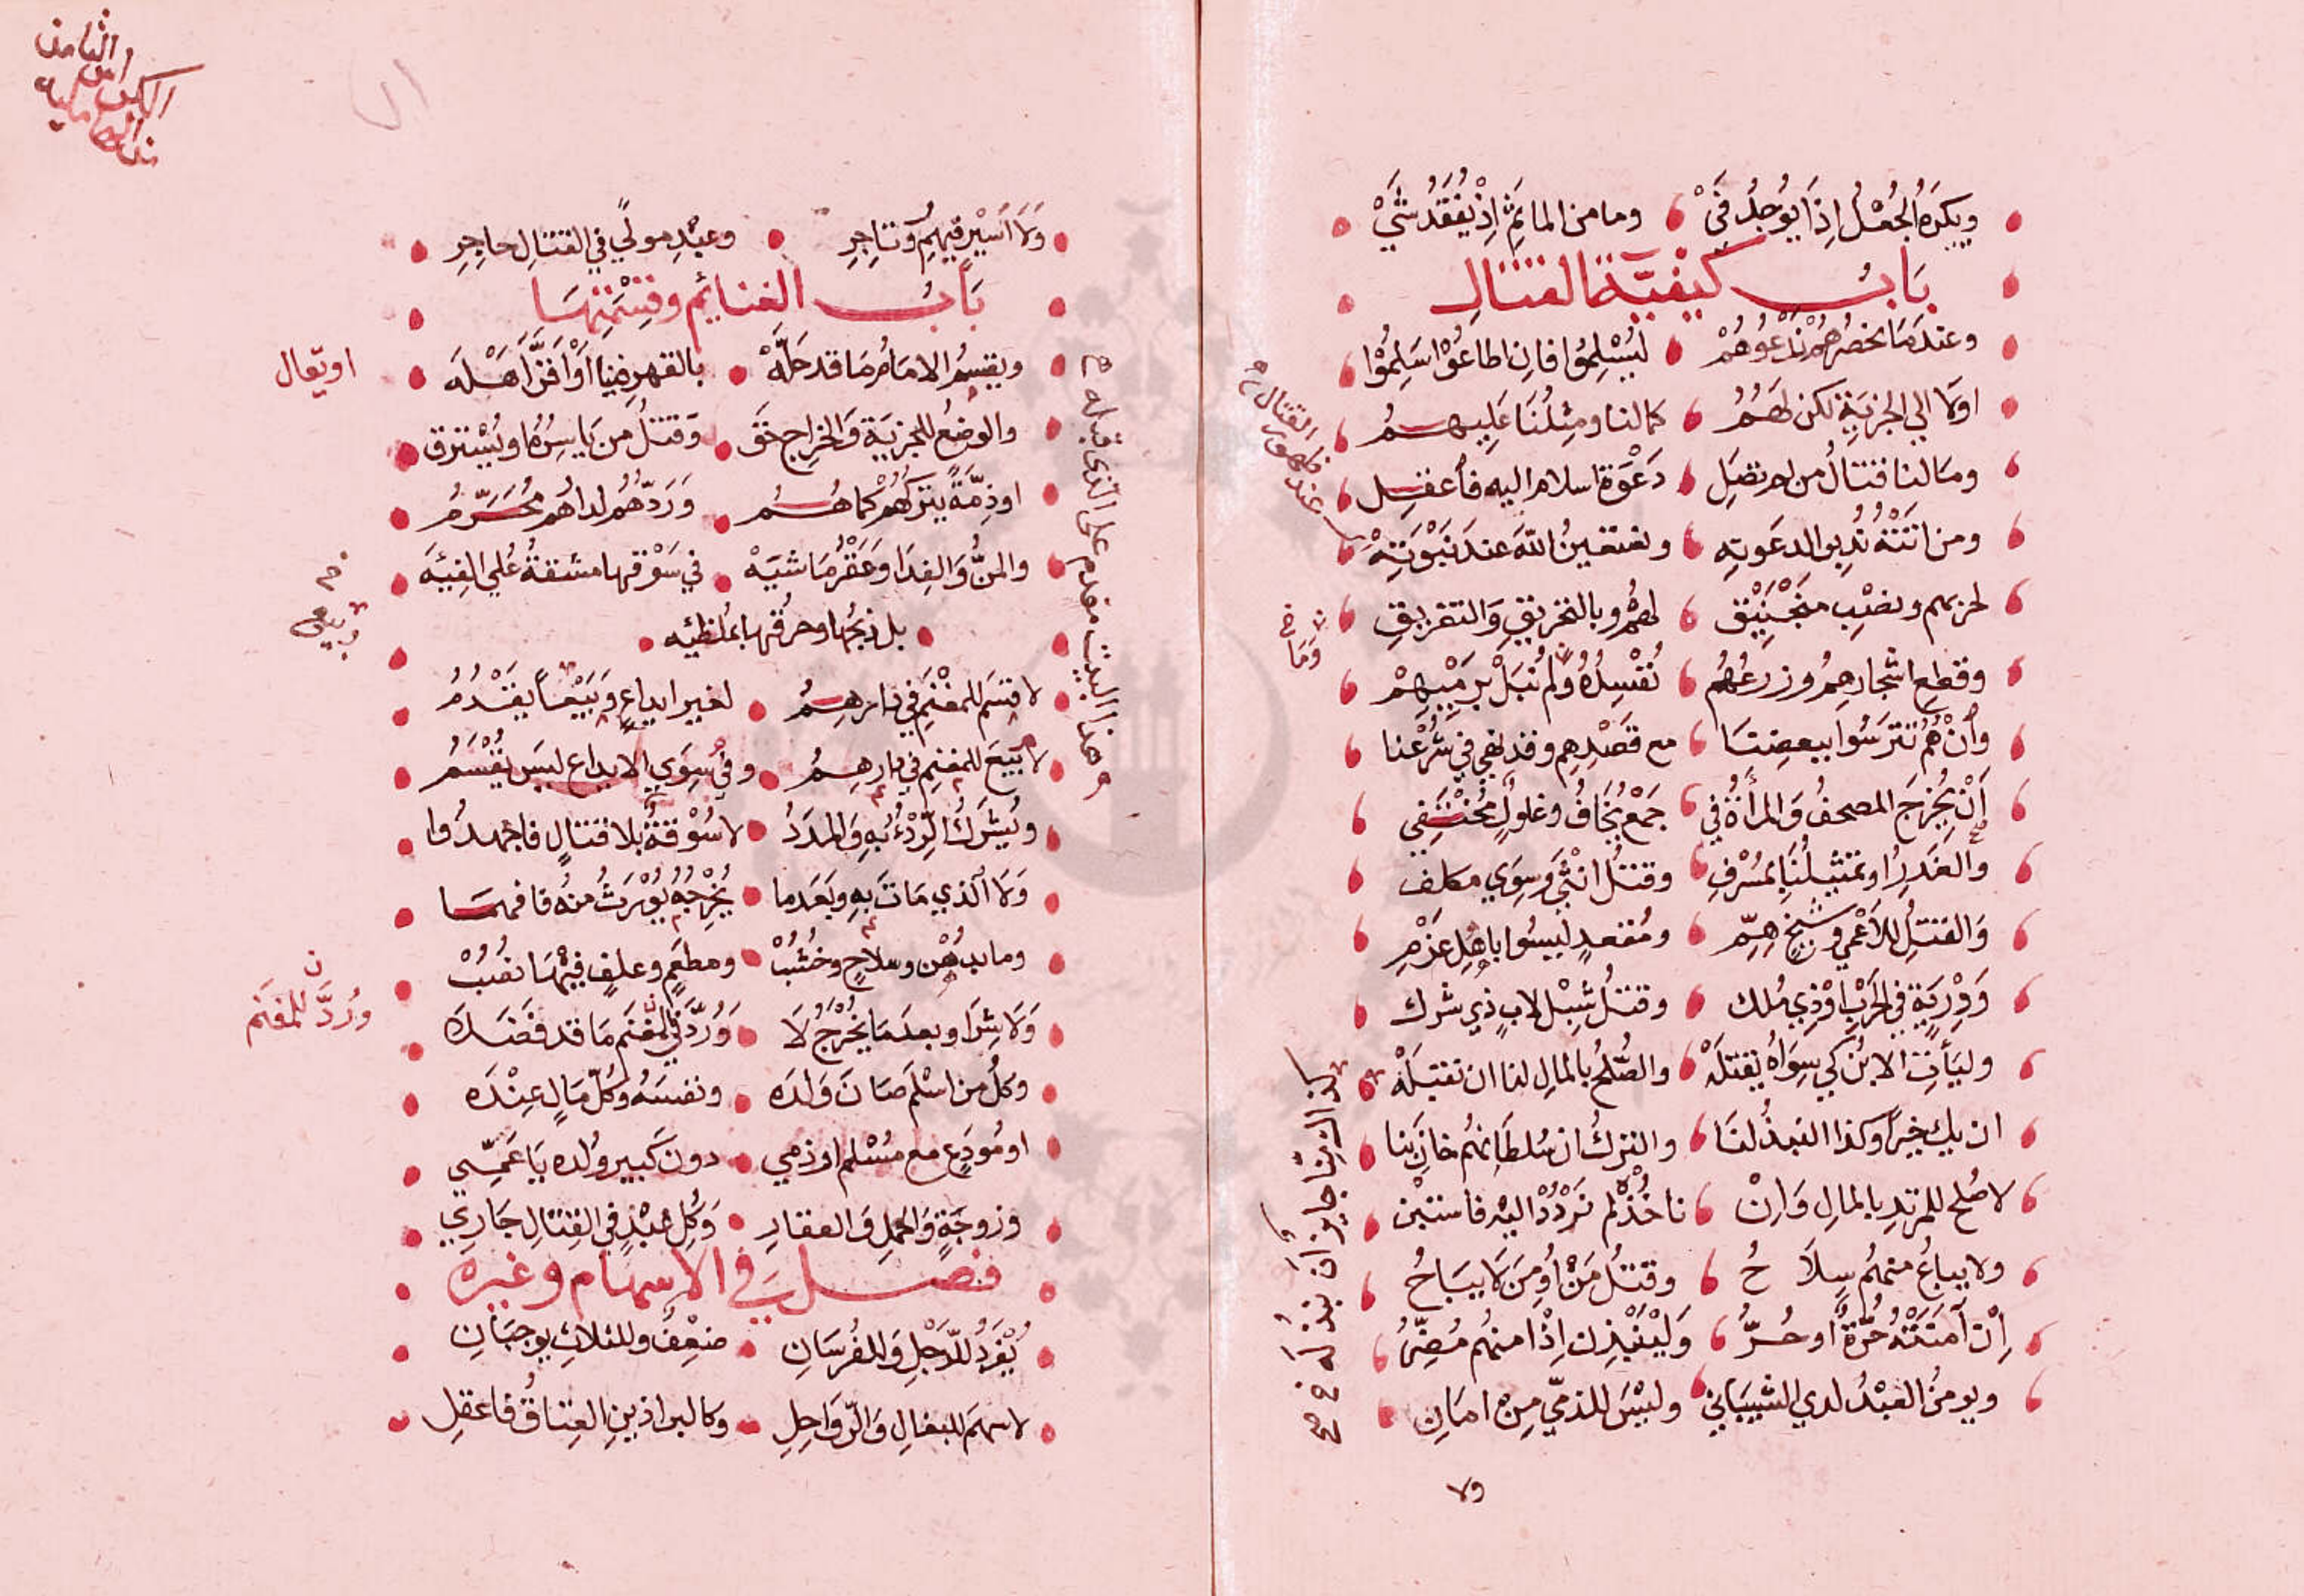 ويكره الجعل إذا يوجد في وما من المايم إذ يفقد شي
باب كيفية القتال
وعندما نحصرهم ندعوهم ليسلموا فان اطاعوا سلموا
اولا الي الجزية لكن لهم كما لنا ومثلنا عليهم
وما لنا قتال من لم تصل دعوة اسلام اليه فاعقل
ومن اتته ندبوا لدعوته ونستعين الله عند نبوته
لحربهم ونصب منجنيق لهم وبالتحريق والتغريق
وقطع اشجارهم وزرعهم نفسده ولم نبل برميهم
وان هم تترسوا ببعضنا مع قصدهم وقد نهي في شرعنا
أن يخرج المصحف والمرأة في جمع يخاف وغلول مختفي
والغدر او تمثيلنا بمسرف وقتل انثى وسوي مكلف
والقتل للأعمي وشيخ هم ومقعد ليسوا باهل عزم
وذرية في الحرب او ذي ملك وقتل شبل لاب ذي شرك
وليأت الابن كي سواه يقتله والصلح بالمال لنا ان نقبله
ان يك خيرا وكذا النبذ لنا والترك ان سلطانهم خاننا
لا صلح للمرتد بالمال وان ناخذ لم نردد اليه فاستبن
ولا يباع منهم سلاح وقتل من أومن لا يباح
إن آمنته حرة او حر ولينبذن إذا منهم مضر
ويومن العبد لدي الشيباني وليس للذمي من امان
ولا
وما
كذا لنا جايز أن نبذ له صح
ولا أسير فيهم وتاجر وعبد مولي في القتال حاجر
باب الغنايم وقسمتها
ويقسم الامام ما قد حله بالقهر فينا او اقر اهله
او يقال
والوضع للجزية والخراج حق وقتل من ياسره او يسترق
او ذمة يتركهم كما هم وردهم لدارهم محرم
والمن والفدا وعقر ماشيه في سوقها مشقة علي الفيئه
بل ذبحها وحرقها بملظيه
لا قسم للمغنم في دارهم لغير ايداع وبيعا يقدم
لا بيع للمغنم في دارهم وفي سوي الايداع ليس يقسم
وهذا البيت مقدم على الذي قبله
ويشرك الردء به والمدد لا سوقة بلا قتال فاجهدوا
ولا الذي مات به وبعد ما يخرجه يورث منه فافهما
وما بدهن وسلاح وخشب ومطعم وعلف فيها نصب
ولا شرا وبعد ما يخرج لا ورد في المغنم ما قد فضلا
ورد للمغنم
وكل من اسلم صان ولده ونفسه وكل مال عنده
او مودع مع مسلم او ذمي دون كبير ولده يا عمي
وزوجة والحمل والعقار وكل عبد في القتال جاري
فصل في الاسهام وغيره
يفرد للرجل وللفرسان ضعف وللثلاث يوجبان
لا سهم للبغال والرواحل وكالبراذين العتاق فاعقل